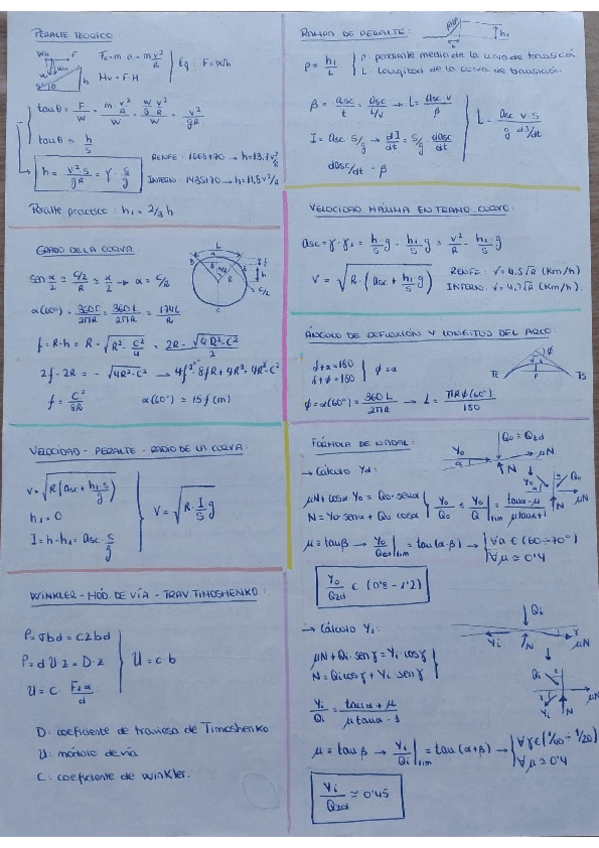 PERALTE TEORICO:
Fc = m·a = m v²/R } Eq: F = W·h
Mv = F·H
tanθ = F/W = (m·v²/R)/W = (W/g · v²/R)/W = v²/gR
tanθ ≈ h/S
h = v²·s/gR = γ·s/g
RENFE: 1665+70 → h = 13,7 v²/R
INTERN: 1435+70 → h = 11,8 v²/R
Peralte practico: h₁ = 2/3 h
GRADO DE LA CURVA:
sen α/2 = (C/2)/R ≈ α/2 → α = C/R
α(60°) = 360L/2πR = 360L/2πR = 1146/R
f = R-h = R - √(R² - C²/4) = (2R - √(4R²-C²))/2
2f - 2R = -√(4R²-C²) → 4f² - 8fR + 4R² = 4R²-C²
f = C²/8R α(60°) ≈ 15f (m)
VELOCIDAD - PERALTE - RADIO DE LA CURVA:
v = √(R(asc + h₁·g/s))
h₁ = 0
I = h - h₁ = asc·s/g
V = √(R·I/S·g)
WINKLER - MÓD. DE VÍA - TRAV. TIMOSHENKO:
P = σbd = czbd
P = d·U·z = D·z
U = c·F₁α/d
U = c·b
D: coeficiente de traviesa de Timoshenko
U: módulo de vía
C: coeficiente de Winkler.
RAMPA DE PERALTE:
p = h₁/L { p: pendiente media de la curva de transición
L: longitud de la curva de transición.
β = asc/t = asc/(L/v) → L = asc·v/β
I = asc·S/g → dI/dt = S/g · dasc/dt
dasc/dt = β
L = asc·v·s/(g·dI/dt)
VELOCIDAD MÁXIMA EN TRAMO CURVO:
asc = γ-γ₁ = h/S g - h₁/S g = v²/R - h₁/S g
V = √(R·(asc + h₁/S g))
RENFE: V = 4,5√R (Km/h)
INTERN: V = 4,7√R (Km/h).
ÁNGULO DE DEFLEXIÓN Y LONGITUD DEL ARCO:
δ+α = 180
δ+ϕ = 180 | ϕ = α
ϕ = α(60°) = 360L/2πR → L = πRϕ(60°)/180
FÓRMULA DE NADAL:
→ Cálculo Yd:
μN + cosα Y₀ = Q₀·senα
N = Y₀·senα + Q₀ cosα
Y₀/Q₀ ≤ Y₀/Q₀|lim = (tanα-μ)/(μtanα+1)
μ = tanβ → Y₀/Q₂d|lim = tan(α-β) → { ∀α ∈ (60÷70°)
∀μ ≈ 0'4
Y₀/Q₂d ∈ (0'8 - 1'2)
→ Cálculo Y₁:
μN + Qi·senγ = Yi·cosγ
N = Qi cosγ + Yi·senγ
Yi/Qi = (tanα + μ)/(μ tanα - 1)
μ = tanβ → Yi/Qi|lim = tan(α+β) → { ∀γ ∈ (1/60 ÷ 1/20)
∀μ ≈ 0'4
Yi/Q₂d ≈ 0'45